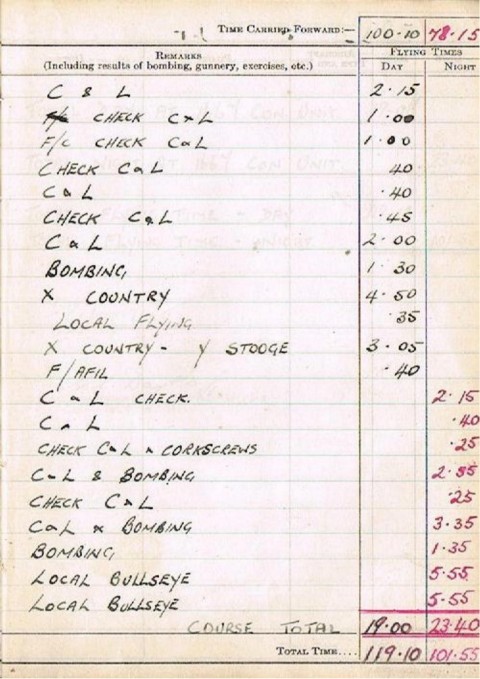 TIME CARRIED FORWARD:— 100·10 78·15
REMARKS FLYING TIMES
(Including results of bombing, gunnery, exercises, etc.) DAY NIGHT
C & L 2·15
CHECK C & L 1·00
F/C CHECK C & L 1·00
CHECK C & L ·40
C & L ·40
CHECK C & L ·45
C & L 2·00
BOMBING 1·30
X COUNTRY 4·50
LOCAL FLYING ·35
X COUNTRY - Y STOOGE 3·05
F/AFIL ·40
C & L CHECK. 2·15
C & L ·40
CHECK C & L & CORKSCREWS ·25
C & L & BOMBING
CHECK C & L ·25
C & L & BOMBING 3·35
BOMBING 1·35
LOCAL BULLSEYE 5·55
LOCAL BULLSEYE 5·55
COURSE TOTAL 19·00 23·40
TOTAL TIME.... 119·10 101·55